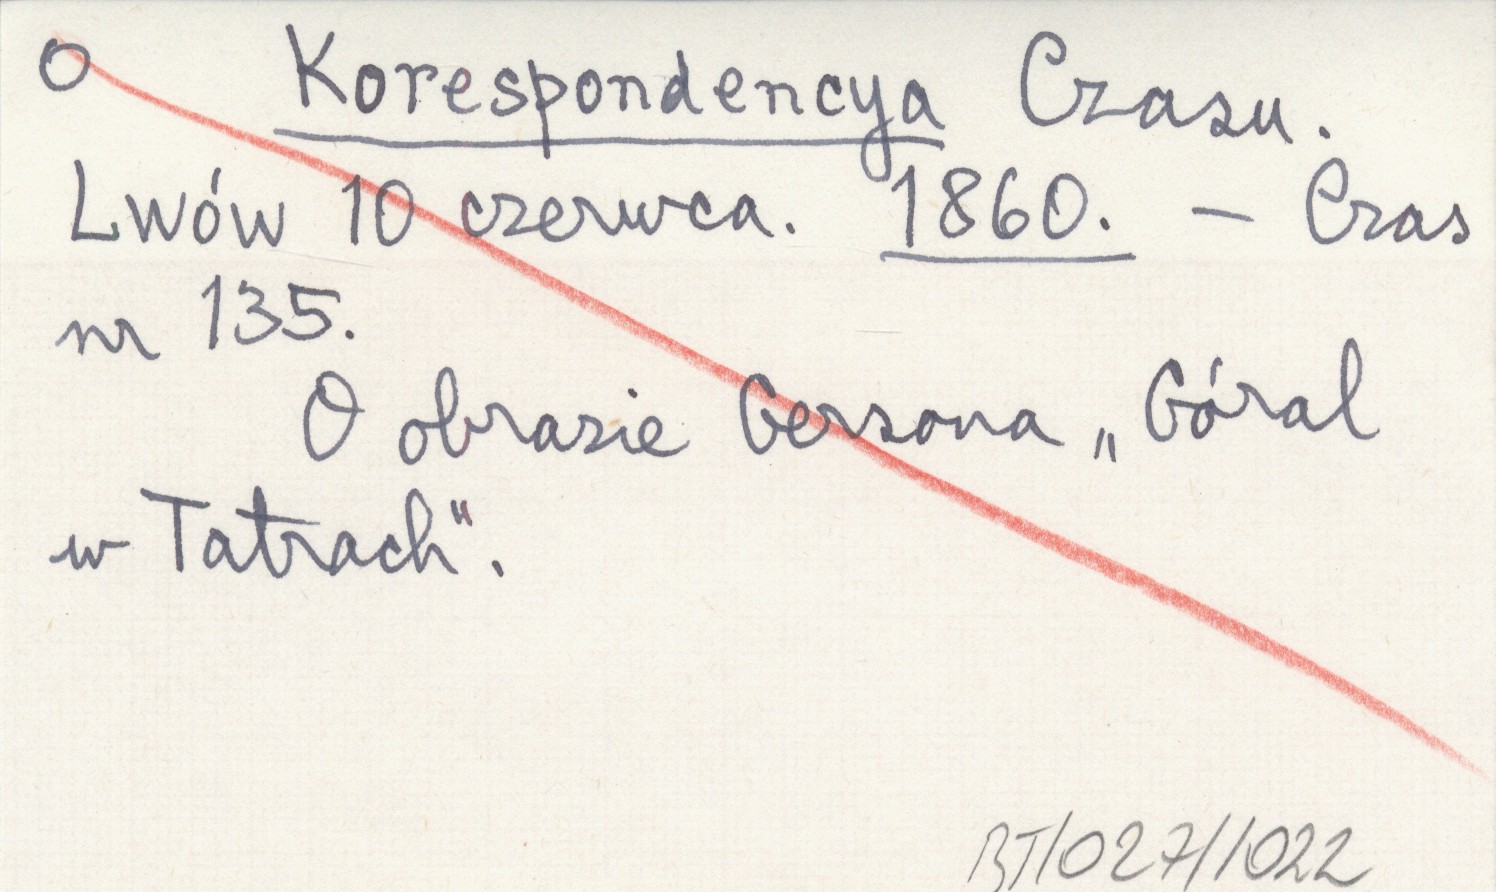 O Korespondencya Czasu.
Lwów 10 czerwca. 1860. – Czas
nr 135.
O obrazie Gersona „Góral
w Tatrach".
BT/027/1022